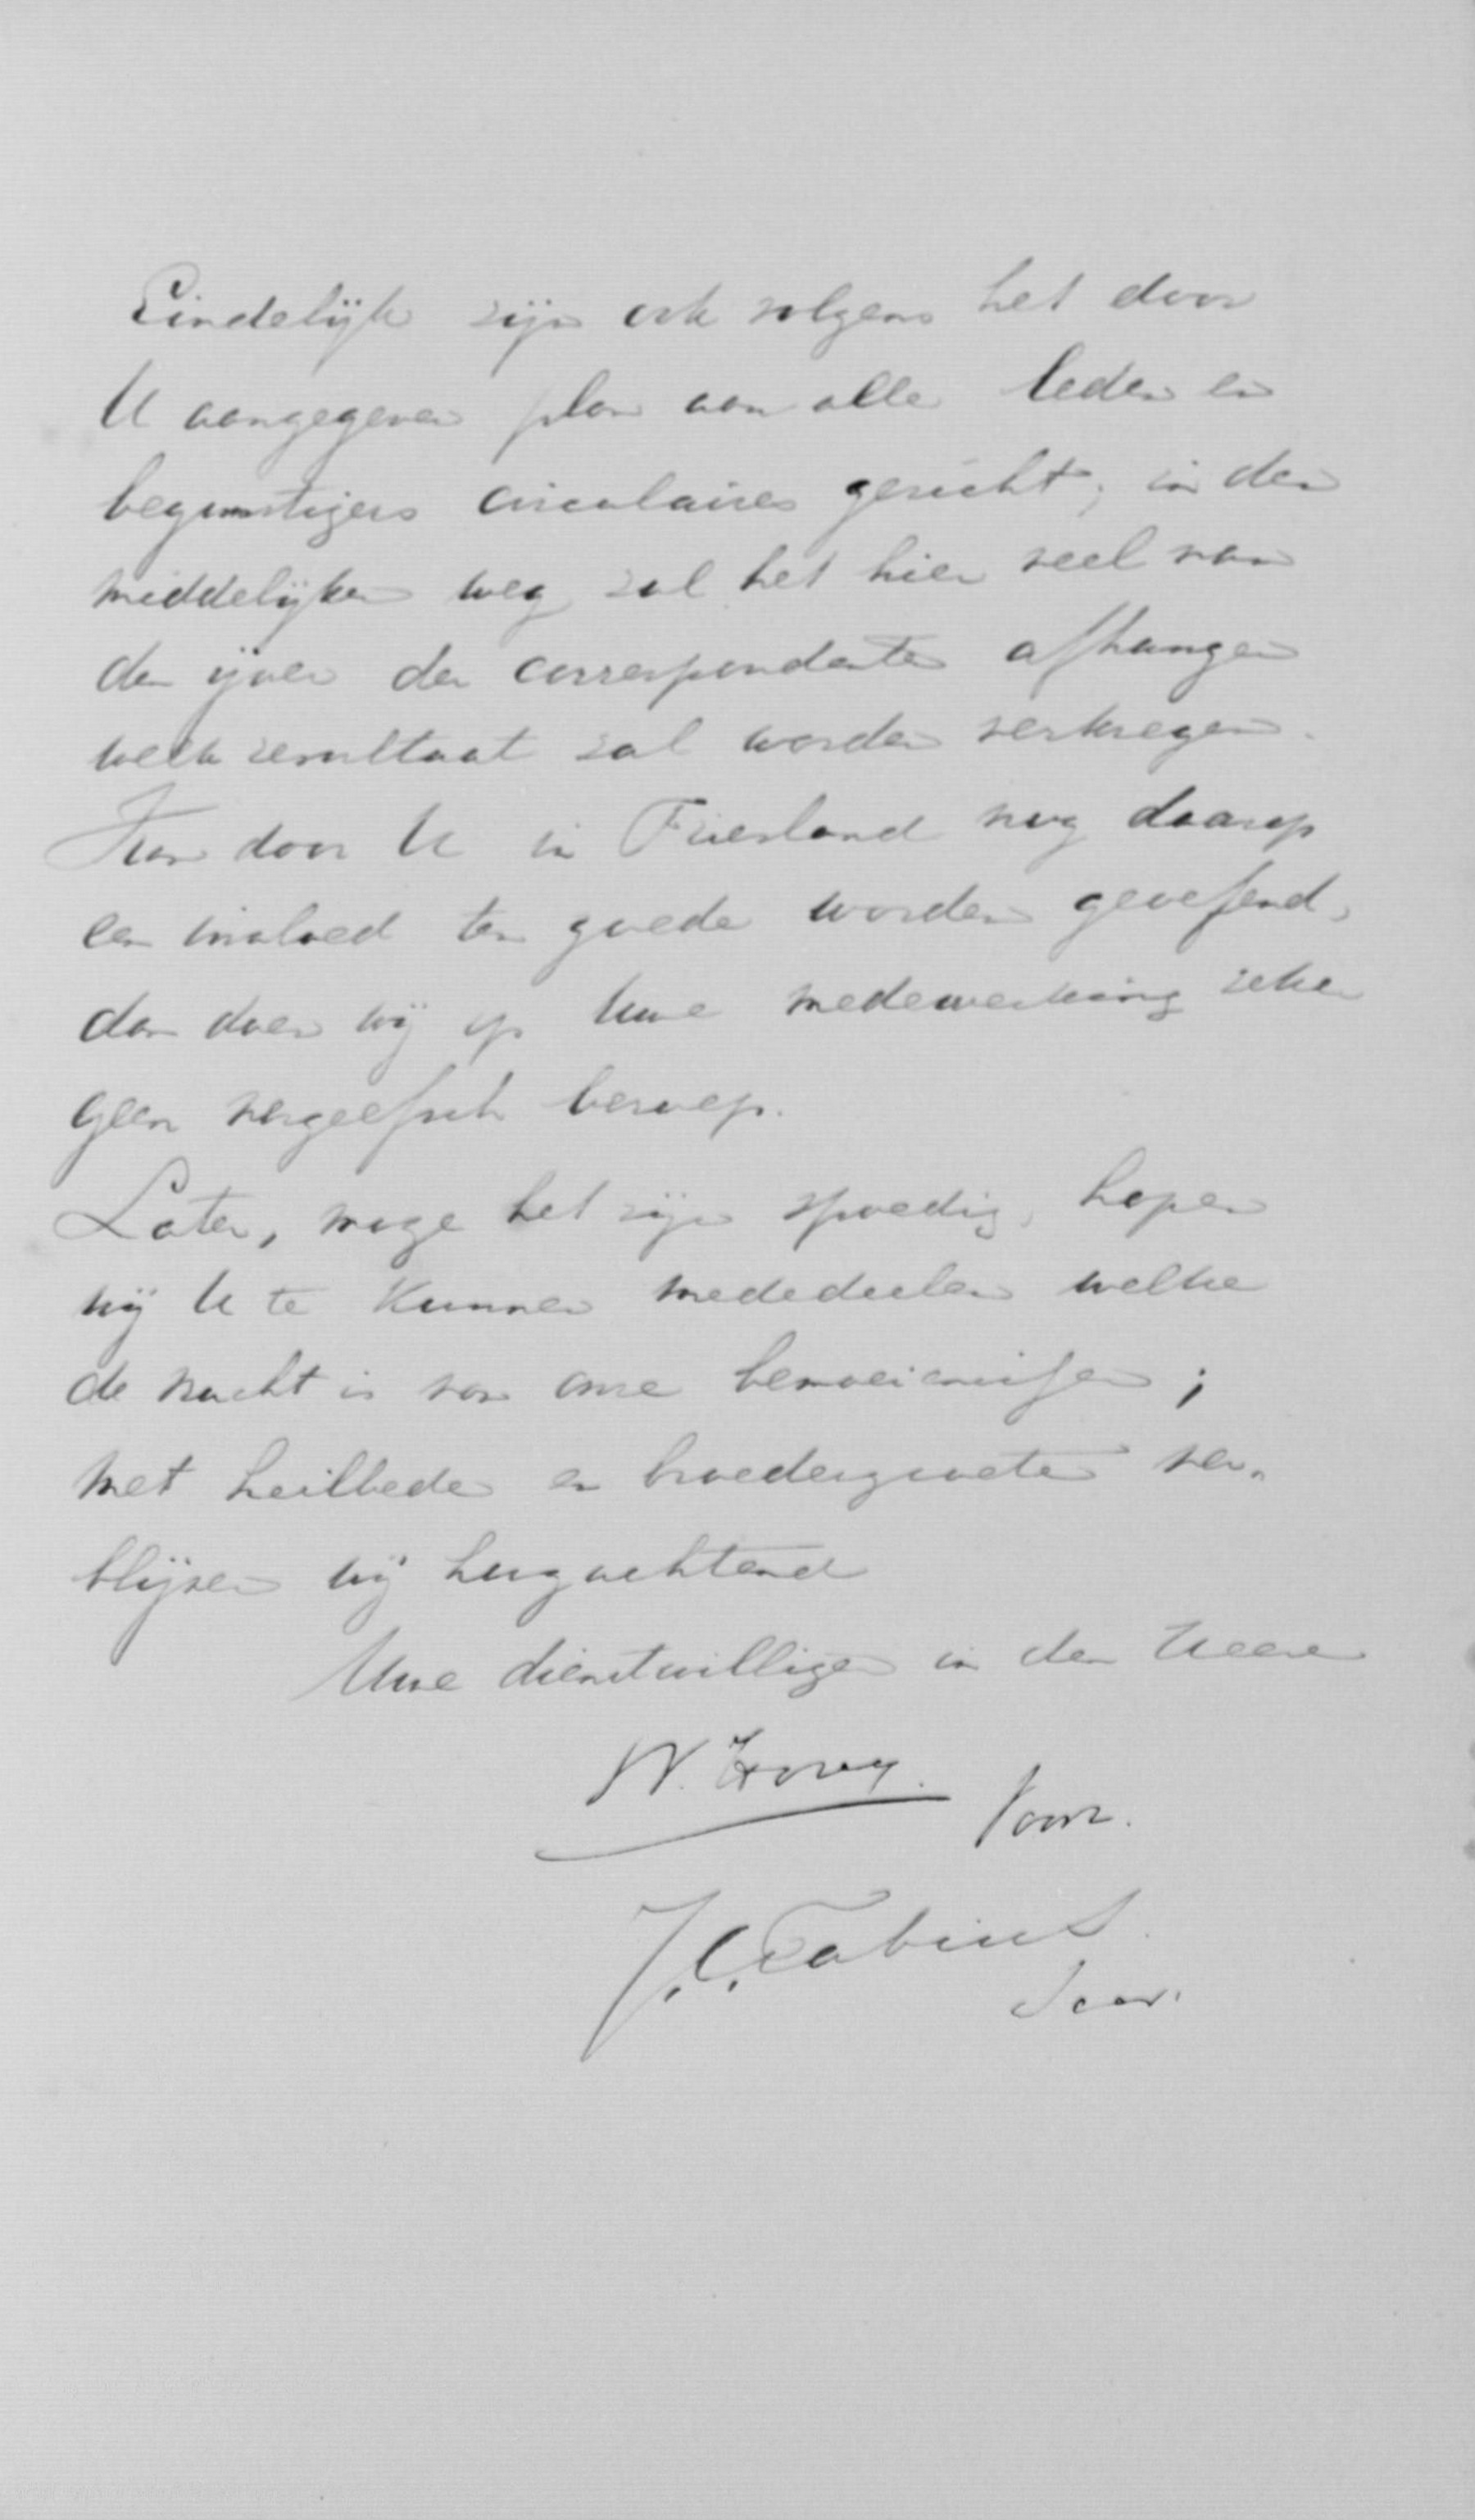 Eindelijk zijn ook volgens het door
U aangegeven plan aan alle leden en
begunstigers circulaires gericht; in den
middelijken weg zal het hier veel van
den ijver der correspondenten afhangen
welk resultaat zal worden verkregen.
Kan door U in Friesland nog daarop
een invloed ten goede worden geoefend,
dan doen wij op Uwe medewerking zeker
geen vergeefsch beroep.
Later, moge het zijn spoedig, hopen
wij U te kunnen mededeelen welke
de vrucht is van onze bemoeienissen;
met heilbede en broedergroeten ver„
blijven wij hoogachtend
Uwe dienstwilligen in den Heere
W. Hovy.
Voorz.
J. C. Fabius
Secr.